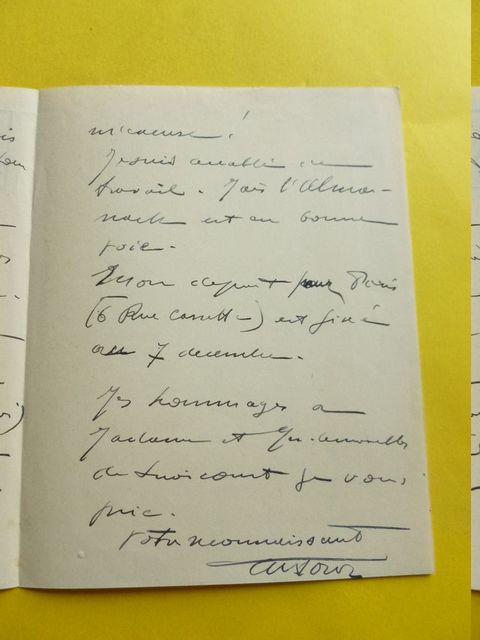 m'excuse!
Je suis accablé de
travail. Mais l'Alma-
nach est en bonne
voie.
Mon départ pour Paris
(6 Rue Cassette) est fixé
au 7 décembre.
Mes hommages à
Madame et Mesdemoiselles
de je vous
prie.
Votre reconnaissant